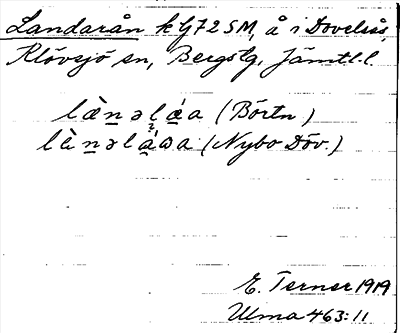 Landarån kG72SM, å i Dovelsås,
Klövsjö sn, Bergslg, Jämtl. l.
læ̀nəlǽa (Börtn)
lènəláωa (Nybo Döv.)
E. Ternér 1919
Ulma 463:11